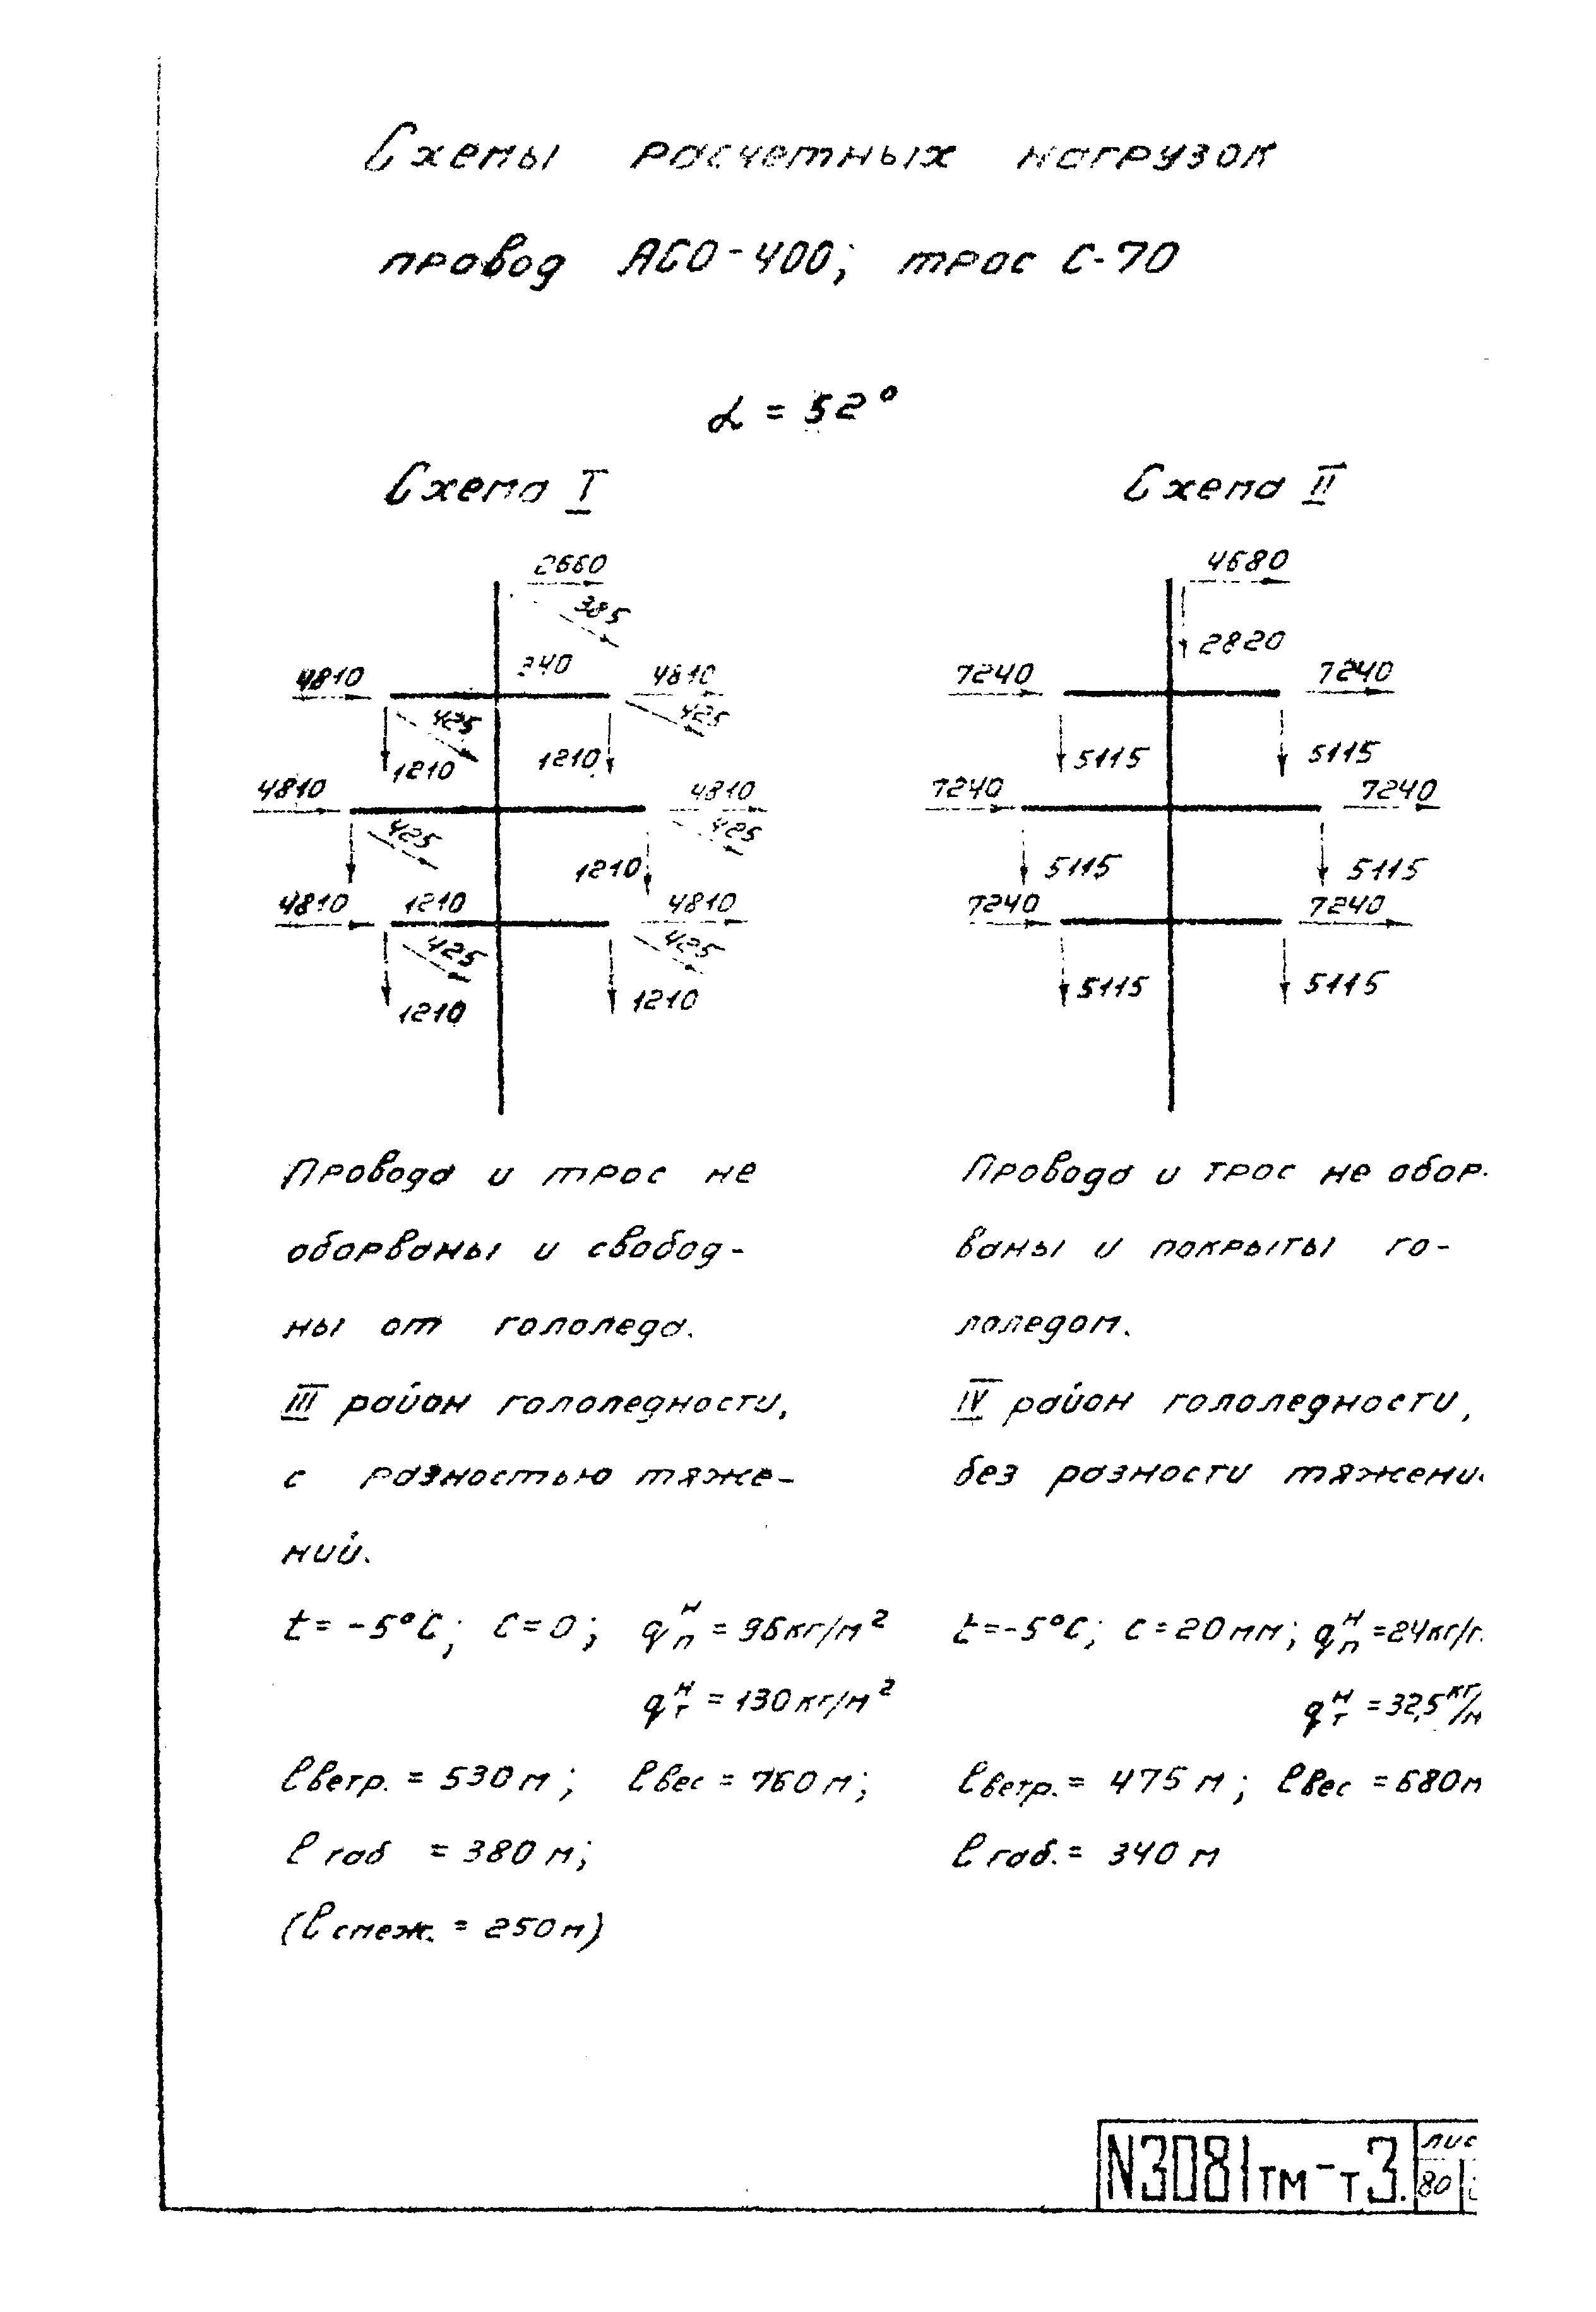 Схемы расчетных нагрузок
провод АСО-400; трос С-70
α = 52°
Схема I
2660
385
340
4810
4810
425
425
1210
1210
4810
4810
425
425
1210
4810
1210
4810
425
425
1210
1210
Схема II
4680
2820
7240
7240
5115
5115
7240
7240
5115
5115
7240
7240
5115
5115
Провода и трос не
оборваны и свобод-
ны от гололеда.
III район гололедности,
с разностью тяже-
ний.
t = -5°С; С = 0; qпн = 96 кг/м²
qтн = 130 кг/м²
lветр. = 530 м; lвес = 760 м;
lгаб = 380 м;
(lсмеж. = 250 м)
Провода и трос не обор-
ваны и покрыты го-
лоледом.
IV район гололедности,
без разности тяжени
t = -5°С; С = 20 мм; qпн = 24 кг/м
qтн = 32,5 кг/м
lветр. = 475 м; lвес = 680 м
lгаб. = 340 м
N3081тм-т3.
лис
80